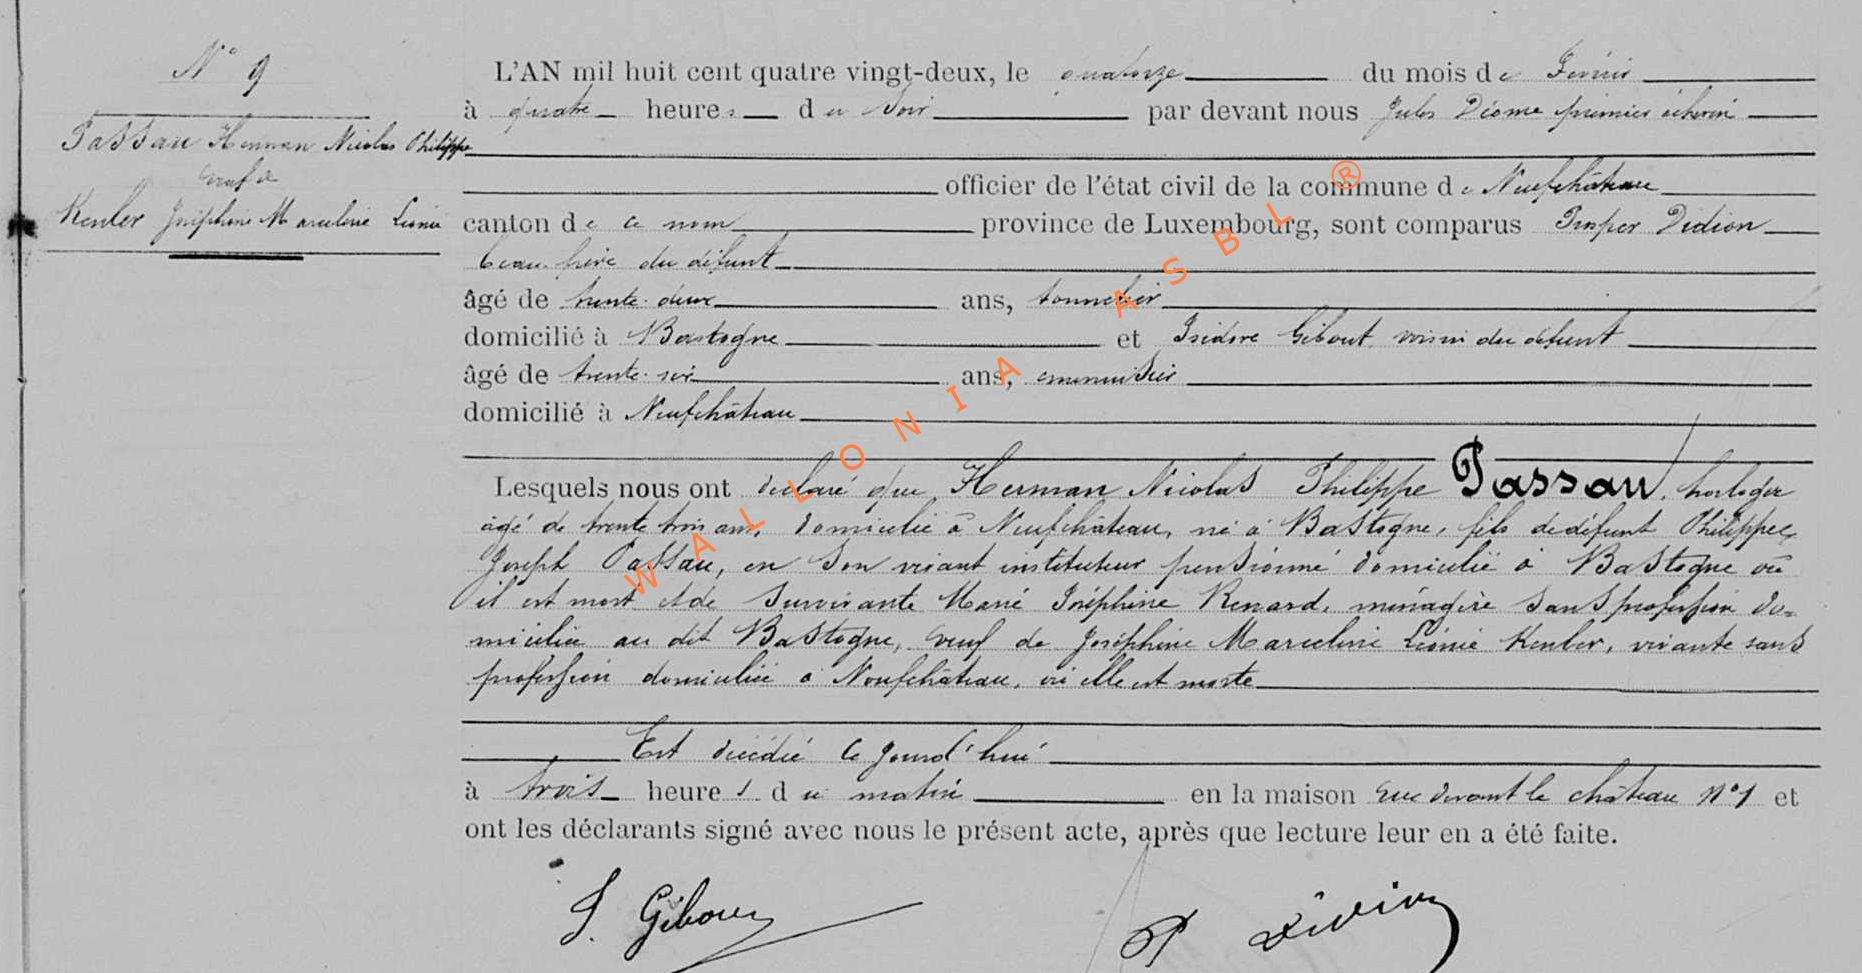 N° 9
Passau Herman Nicolas Philippe
veuf de
Kenler Joséphine Marceline Léonie
L'AN mil huit cent quatre vingt-deux, le quatorze du mois de Février
à quatre heures du Soir par devant nous Jules Déome premier échevin
officier de l'état civil de la commune de Neufchâteau
canton de ce nom province de Luxembourg, sont comparus Prosper Didion
beau-frère du défunt
âgé de trente-deux ans, tonnelier
domicilié à Bastogne et Isidore Gibout voisin du défunt
âgé de trente-six ans, menuisier
domicilié à Neufchâteau
Lesquels nous ont déclaré que Herman Nicolas Philippe Passau, horloger
âgé de trente trois ans, domicilié à Neufchâteau, né à Bastogne, fils de défunt Philippe
Joseph Passau, en son vivant instituteur pensionné domicilié à Bastogne où
il est mort et de survivante Marie Joséphine Renard, ménagère sans profession do=
miciliée au dit Bastogne, veuf de Joséphine Marceline Léonie Kenler, vivante sans
profession domiciliée à Neufchâteau, où elle est morte
Est décédé ce jourd'hui
à trois heures du matin en la maison rue devant le château N° 1 et
ont les déclarants signé avec nous le présent acte, après que lecture leur en a été faite.
Gibout
P Didion
WALLONIA ASBL ®